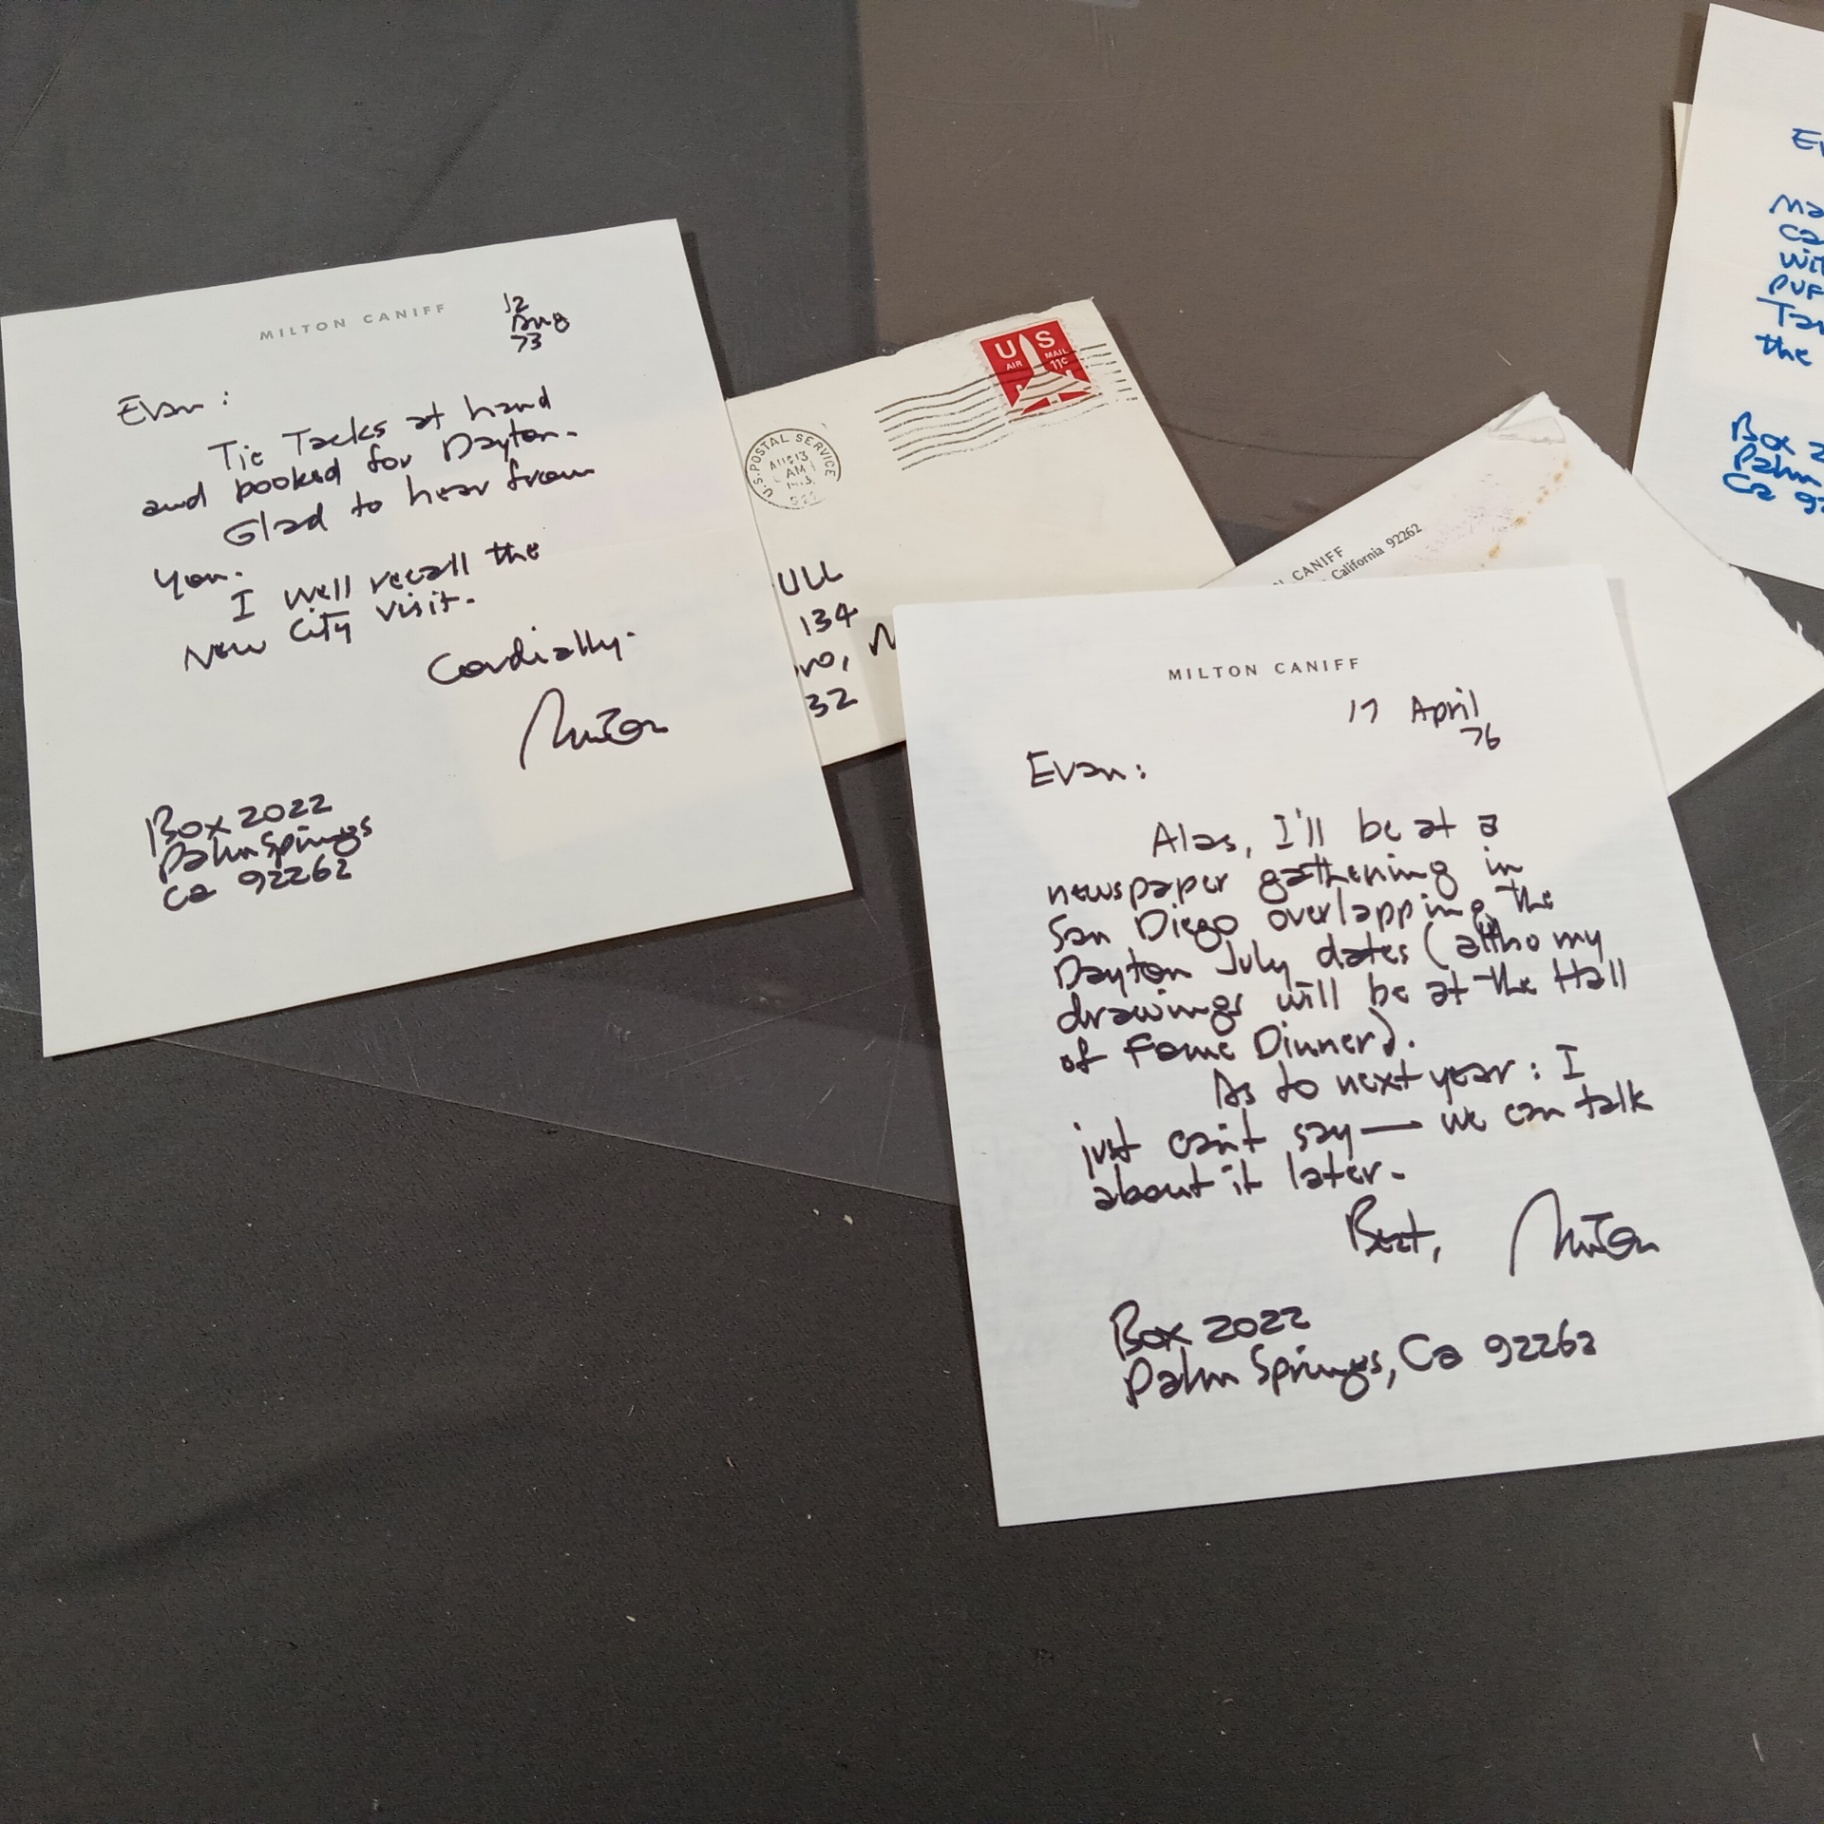 MILTON CANIFF
12
Aug
73
Evan:
Tie Tacks at hand
and booked for Dayton.
Glad to hear from
you.
I well recall the
New City visit.
Cordially.
Milton
Box 2022
Palm Springs
Ca 92262
US
AIR MAIL
11c
U.S. POSTAL SERVICE
AUG 13
AM
ULL
134
ro, N
32
N CANIFF
California 92262
MILTON CANIFF
17 April
76
Evan:
Alas, I'll be at a
newspaper gathering in
San Diego overlapping the
Dayton July dates (altho my
drawings will be at the Hall
of Fame Dinner).
As to next year: I
just can't say — we can talk
about it later.
Best, Milton
Box 2022
Palm Springs, Ca 92262
Ev
Ma
Ca
wit
the
Box 2
Palm
Ca 92